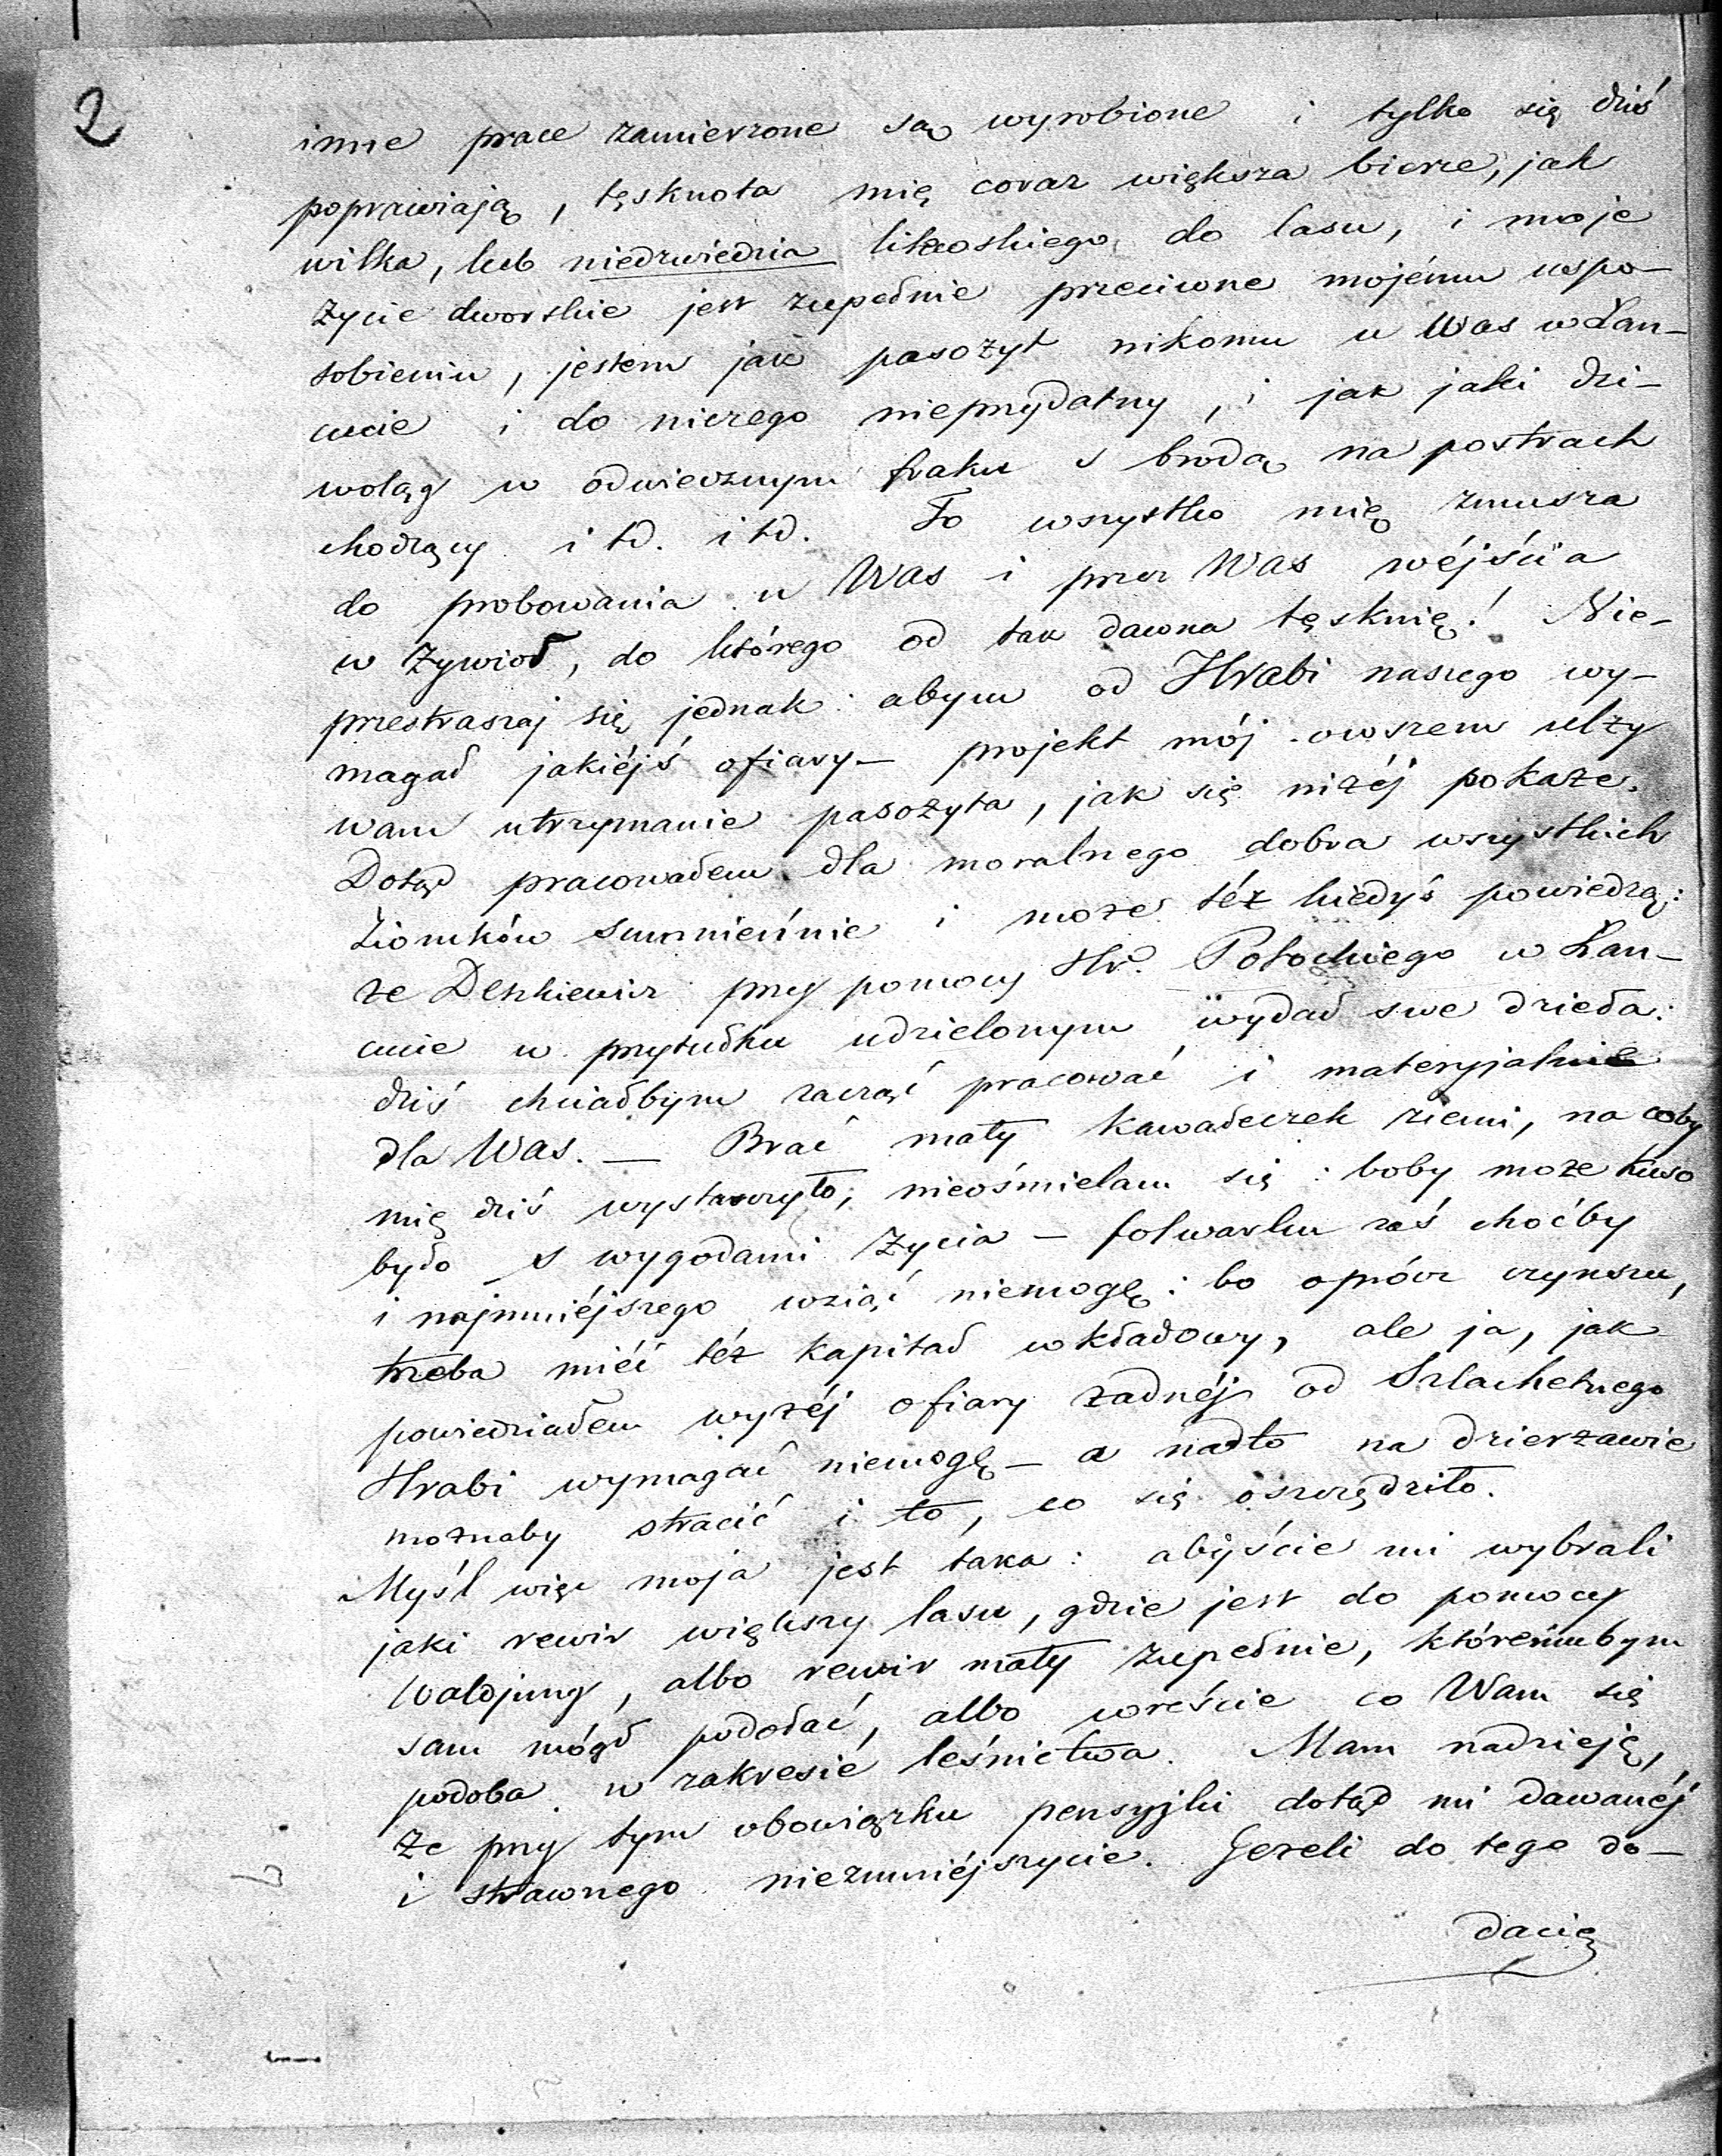 2
inne prace zamierzone są wyrobione i tylko się dziś
poprawiają, tęsknota mię coraz większa bierze, jak
wilka, lub niedźwiedzia litewskiego do lasu, i moje
życie dworskie jest zupełnie przeciwne mojému uspo-
sobieniu, jestem jak pasożyt nikomu u Was w Łań-
cucie i do niczego nieprzydatny, i jak jaki dzi-
woląg w odwiecznym fraku s brodą na postrach
chodzący i td. i td. To wszystko mię zmusza
do probowania u Was i przez Was wéjścia
w żywioł, do którego od tak dawna tęsknię! Nie-
przestraszaj się jednak: abym od Hrabi naszego wy-
magał jakiéjś ofiary — projekt mój owszem ulży
wam utrzymanie pasożyta, jak się niżéj pokaże.
Dotąd pracowałem dla moralnego dobra wszystkich
Ziomków sumnieńnie i może téż kiedyś powiedzą:
że Deszkiewicz przy pomocy Hr. Potockiego w Łań-
cucie w przytułku udzielonym wydał swe dzieła:
dziś chciałbym zacząć pracować i materyjalnie
dla Was. — Brać mały kawałeczek ziemi, na coby
mię dziś wystarczyło, nieośmielam się: boby może kuso
było s wygodami życia — folwarku zaś choćby
i najmniéjszego wziąć niemogę: bo oprócz czynszu,
trzeba miéć téż kapitał wkładowy, ale ja, jak
powiedziałem wyżéj ofiary żadnéj od Szlachetnego
Hrabi wymagać niemogę — a nadto na dzierżawie
możnaby stracić i to, co się oszczędziło.
Myśl więc moja jest taka: abyście mi wybrali
jaki rewir większy lasu, gdzie jest do pomocy
Waldjung, albo rewir mały zupełnie, któremubym
sam mógł podołać, albo wreście co Wam się
podoba w zakresie leśnictwa. Mam nadzieję,
że przy tym obowiązku pensyjki dotąd mi dawanéj
i strawnego niezmniéjszycie. Jeżeli do tego do-
dacie